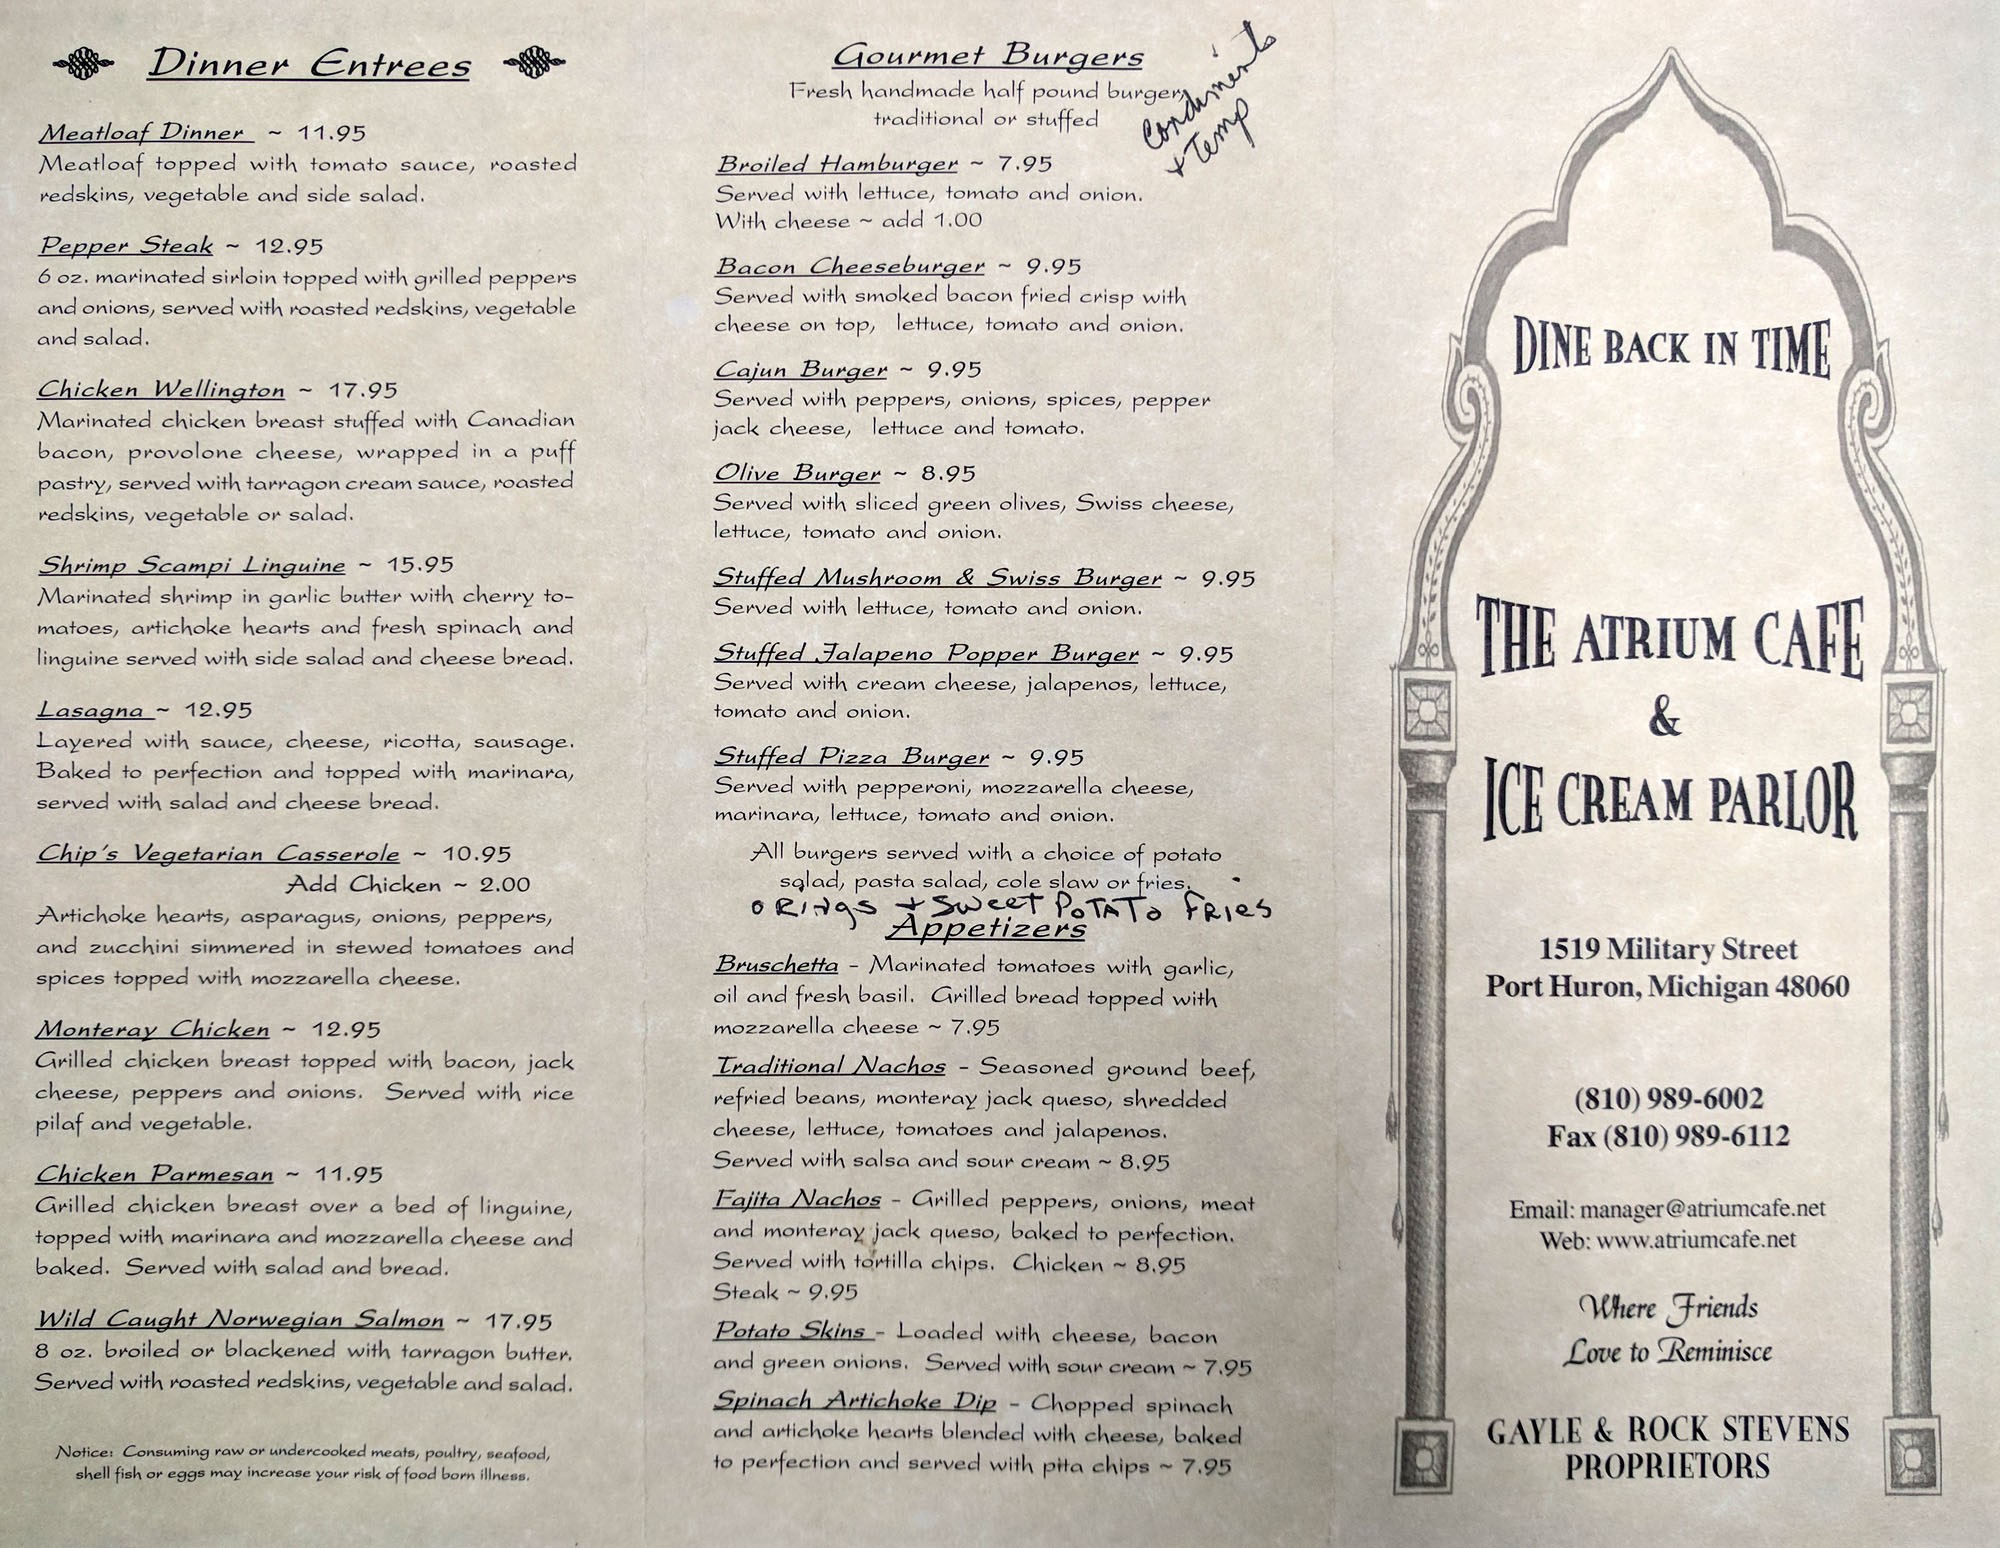 Dinner Entrees
Meatloaf Dinner ~ 11.95
Meatloaf topped with tomato sauce, roasted
redskins, vegetable and side salad.
Pepper Steak ~ 12.95
6 oz. marinated sirloin topped with grilled peppers
and onions, served with roasted redskins, vegetable
and salad.
Chicken Wellington ~ 17.95
Marinated chicken breast stuffed with Canadian
bacon, provolone cheese, wrapped in a puff
pastry, served with tarragon cream sauce, roasted
redskins, vegetable or salad.
Shrimp Scampi Linguine ~ 15.95
Marinated shrimp in garlic butter with cherry to-
matoes, artichoke hearts and fresh spinach and
linguine served with side salad and cheese bread.
Lasagna ~ 12.95
Layered with sauce, cheese, ricotta, sausage.
Baked to perfection and topped with marinara,
served with salad and cheese bread.
Chip's Vegetarian Casserole ~ 10.95
Add Chicken ~ 2.00
Artichoke hearts, asparagus, onions, peppers,
and zucchini simmered in stewed tomatoes and
spices topped with mozzarella cheese.
Monteray Chicken ~ 12.95
Grilled chicken breast topped with bacon, jack
cheese, peppers and onions. Served with rice
pilaf and vegetable.
Chicken Parmesan ~ 11.95
Grilled chicken breast over a bed of linguine,
topped with marinara and mozzarella cheese and
baked. Served with salad and bread.
Wild Caught Norwegian Salmon ~ 17.95
8 oz. broiled or blackened with tarragon butter.
Served with roasted redskins, vegetable and salad.
Notice: Consuming raw or undercooked meats, poultry, seafood,
shell fish or eggs may increase your risk of food born illness.
Gourmet Burgers
Fresh handmade half pound burger,
traditional or stuffed
Condiments
+ Temp
Broiled Hamburger ~ 7.95
Served with lettuce, tomato and onion.
With cheese ~ add 1.00
Bacon Cheeseburger ~ 9.95
Served with smoked bacon fried crisp with
cheese on top, lettuce, tomato and onion.
Cajun Burger ~ 9.95
Served with peppers, onions, spices, pepper
jack cheese, lettuce and tomato.
Olive Burger ~ 8.95
Served with sliced green olives, Swiss cheese,
lettuce, tomato and onion.
Stuffed Mushroom & Swiss Burger ~ 9.95
Served with lettuce, tomato and onion.
Stuffed Jalapeno Popper Burger ~ 9.95
Served with cream cheese, jalapenos, lettuce,
tomato and onion.
Stuffed Pizza Burger ~ 9.95
Served with pepperoni, mozzarella cheese,
marinara, lettuce, tomato and onion.
All burgers served with a choice of potato
salad, pasta salad, cole slaw or fries.
O RiNgs + SWeeT PoTATo FRies
Appetizers
Bruschetta - Marinated tomatoes with garlic,
oil and fresh basil. Grilled bread topped with
mozzarella cheese ~ 7.95
Traditional Nachos - Seasoned ground beef,
refried beans, monteray jack queso, shredded
cheese, lettuce, tomatoes and jalapenos.
Served with salsa and sour cream ~ 8.95
Fajita Nachos - Grilled peppers, onions, meat
and monteray jack queso, baked to perfection.
Served with tortilla chips. Chicken ~ 8.95
Steak ~ 9.95
Potato Skins - Loaded with cheese, bacon
and green onions. Served with sour cream ~ 7.95
Spinach Artichoke Dip - Chopped spinach
and artichoke hearts blended with cheese, baked
to perfection and served with pita chips ~ 7.95
DINE BACK IN TIME
THE ATRIUM CAFE
&
ICE CREAM PARLOR
1519 Military Street
Port Huron, Michigan 48060
(810) 989-6002
Fax (810) 989-6112
Email: manager@atriumcafe.net
Web: www.atriumcafe.net
Where Friends
Love to Reminisce
GAYLE & ROCK STEVENS
PROPRIETORS